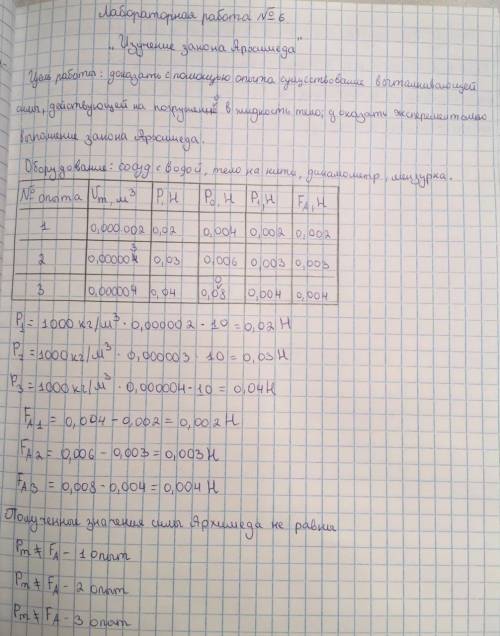 Лабораторная работа № 6
„Изучение закона Архимеда"
Цель работы: доказать с помощью опыта существование выталкивающей
силы, действующей на погружение в жидкость тело, доказать экспериментально
выполнение закона Архимеда.
Оборудование: сосуд с водой, тело на нити, динамометр, мензурка.
№ опыта Vт, м³ P, H P₀, H P₁, H FA, H
1 0,000.002 0,02 0,004 0,002 0,002
2 0,000003 0,03 0,006 0,003 0,003
3 0,000004 0,04 0,008 0,004 0,004
P₁ = 1000 кг/м³ · 0,000002 · 10 = 0,02 H
P₂ = 1000 кг/м³ · 0,000003 · 10 = 0,03 H
P₃ = 1000 кг/м³ · 0,000004 · 10 = 0,04 H
FA1 = 0,004 - 0,002 = 0,002 H
FA2 = 0,006 - 0,003 = 0,003 H
FA3 = 0,008 - 0,004 = 0,004 H
Полученные значения силы Архимеда не равны
Pт ≠ FA - 1 опыт
Pт ≠ FA - 2 опыт
Pт ≠ FA - 3 опыт